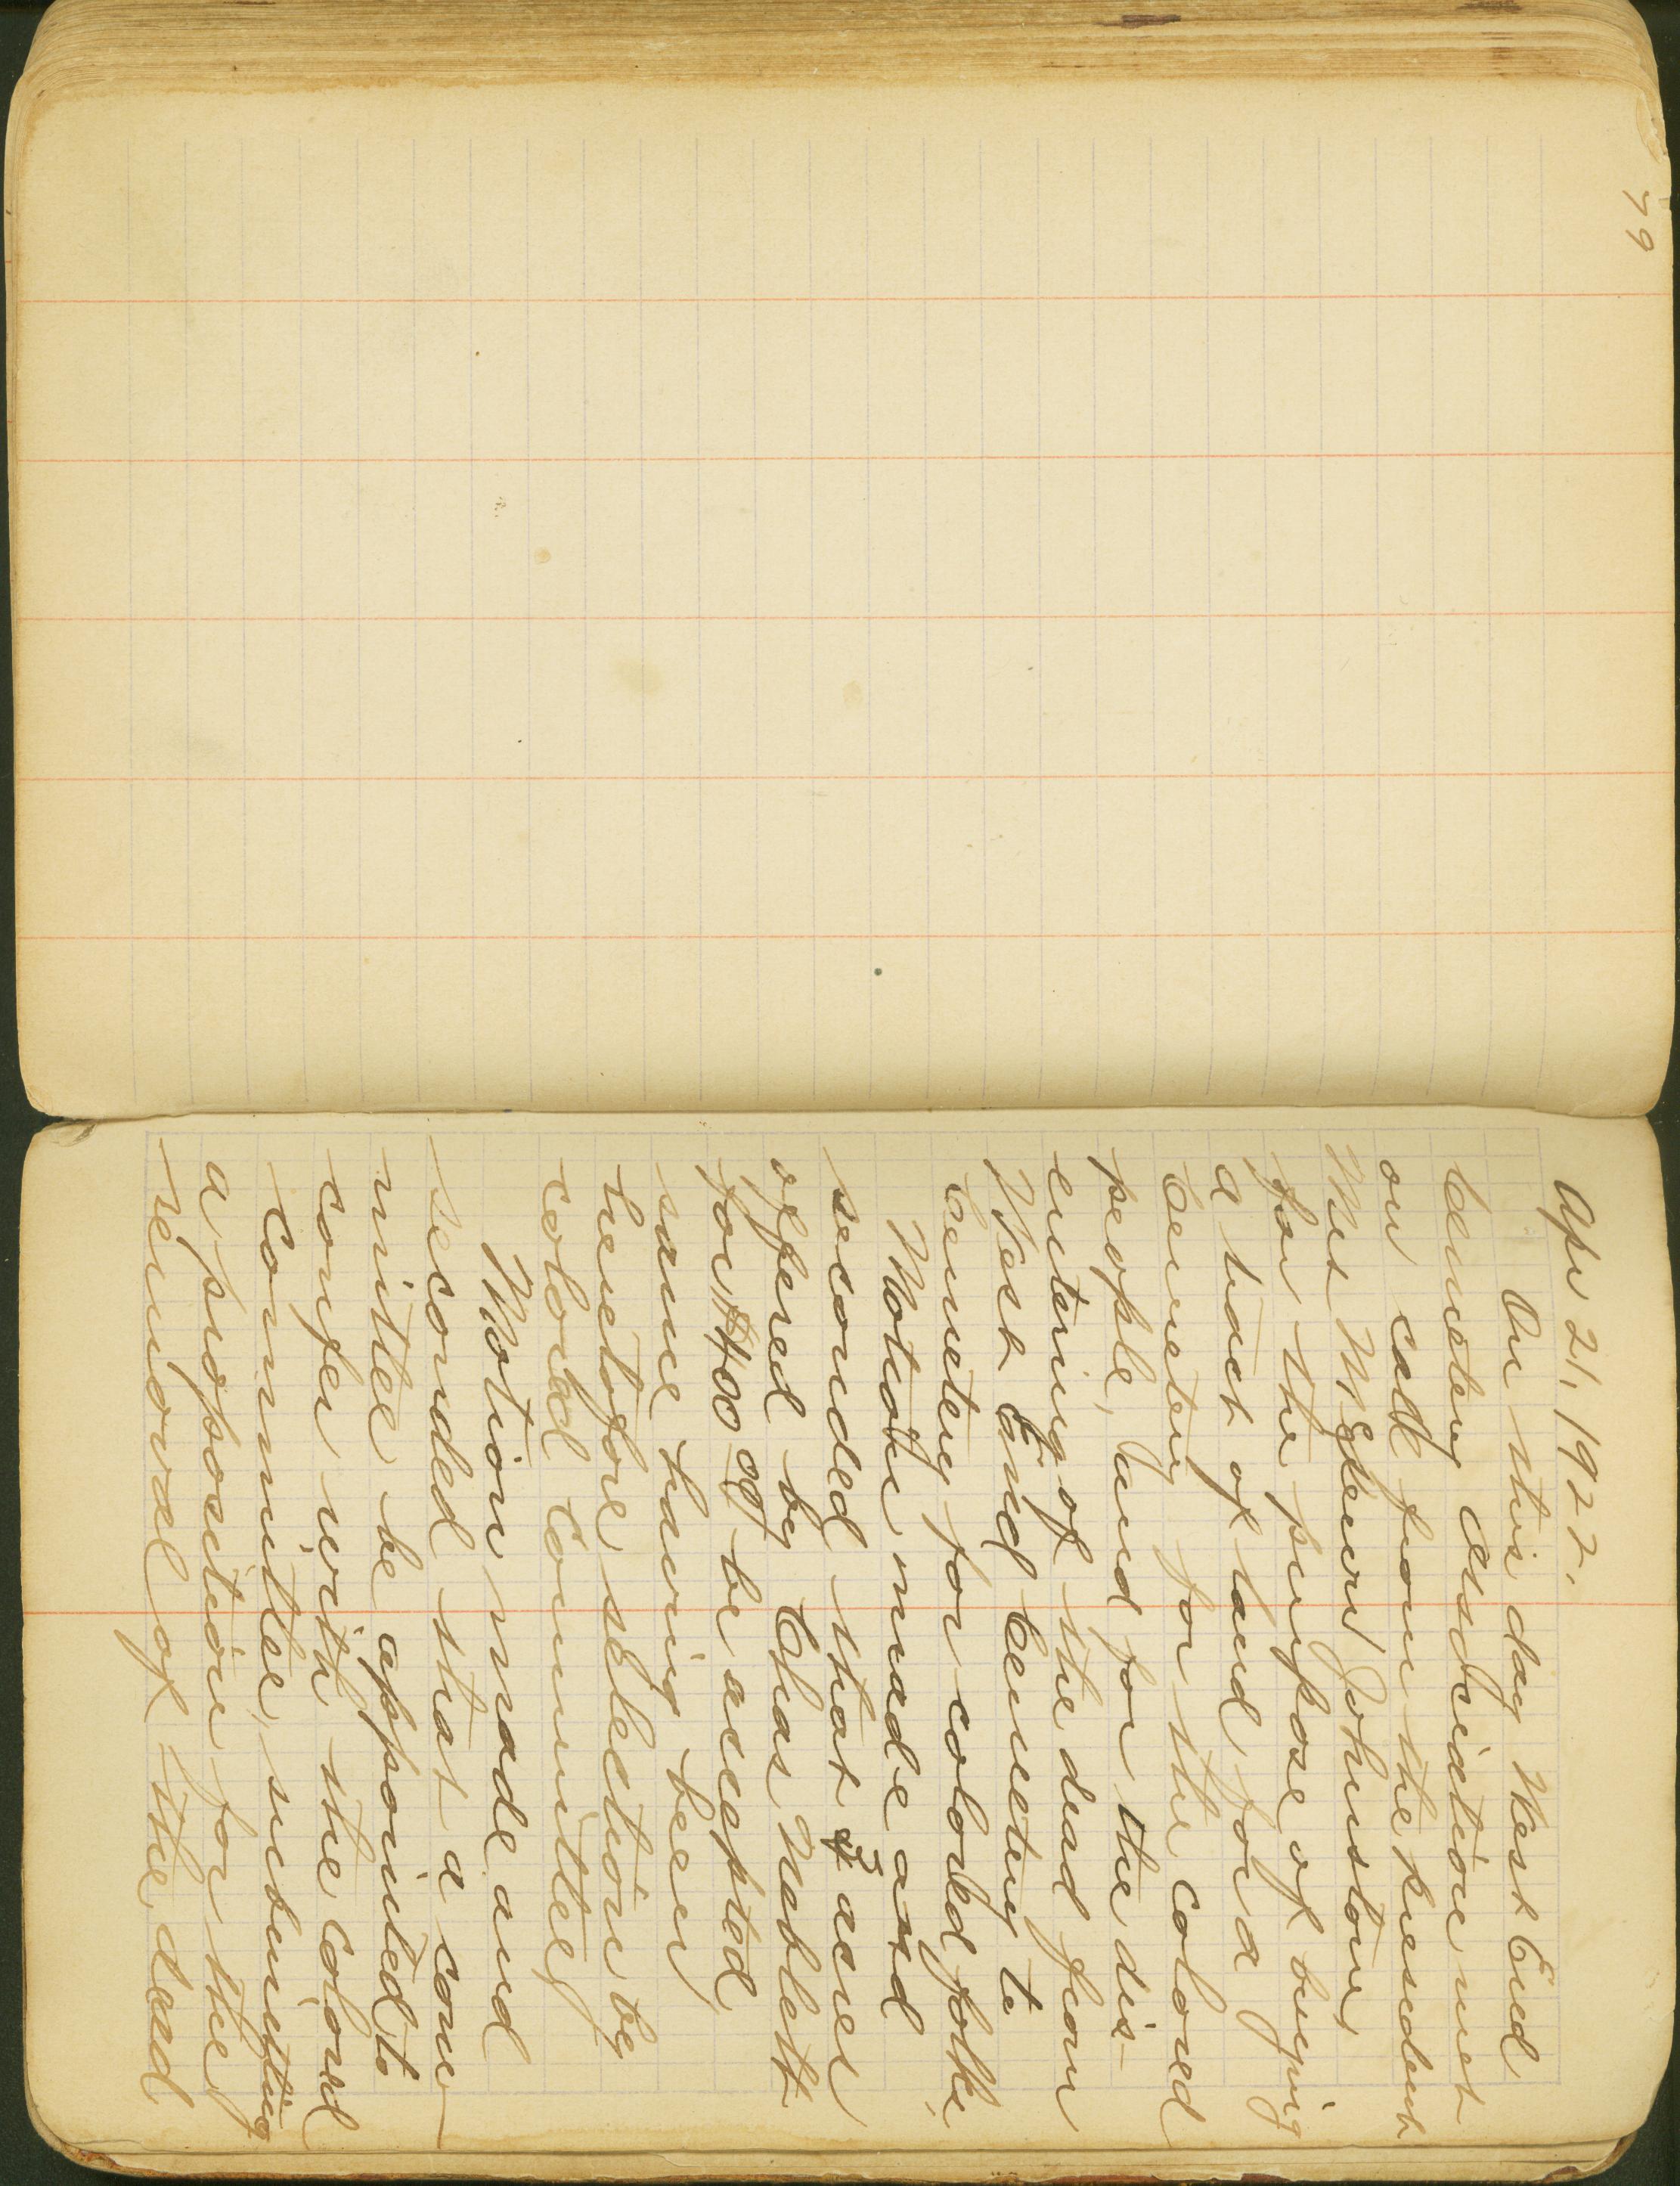 79
Apr 21, 1922.
On this day West End
Cemetery association met
on call from the president
Mrs McGlaun Johnston,
for the purpose of buying
a tract of land for a
Cemetery for the colored
people, and for the dis-
entering of the dead from
West End Cemetery to
Cemetery for colored folks.
Motion made and
seconded that acres
offered by Chas Neblett
for $400 00 be accepted
same having been
heretofore selection by
colored committee
Motion made and
seconded that a com-
mittee be appointed to
confer with the colored
committee, submitting
a proposition for the
removal of the dead